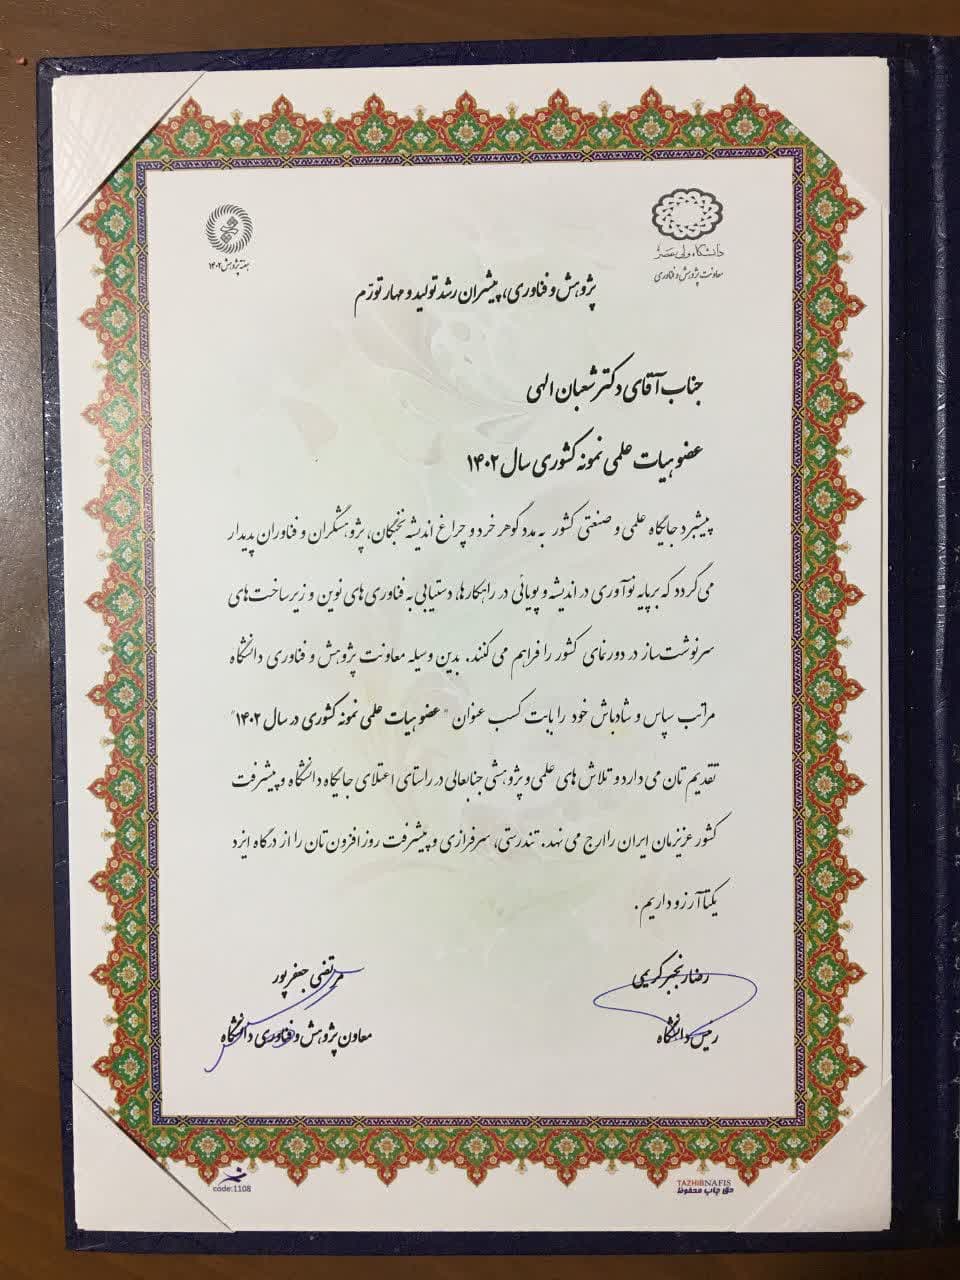 دانشگاه ولی عصر
معاونت پژوهش و فناوری
هفته پژوهش ۱۴۰۲
پژوهش و فناوری، پیشران رشد تولید و مهار تورّم
جناب آقای دکتر شعبان الهی
عضو هیات علمی نمونه کشوری سال ۱۴۰۲
پیشبرد جایگاه علمی و صنعتی کشور به مدد گوهر خرد و چراغ اندیشه نخبگان، پژوهشگران و فناوران پدیدار
می گردد که بر پایه نوآوری در اندیشه و پویائی در راهکارها، دستیابی به فناوری های نوین و زیرساخت های
سرنوشت ساز در دورنمای کشور را فراهم می کنند. بدین وسیله معاونت پژوهش و فناوری دانشگاه
مراتب سپاس و شادباش خود را بابت کسب عنوان "عضو هیات علمی نمونه کشوری در سال ۱۴۰۲"
تقدیم تان می دارد و تلاش های علمی و پژوهشی جنابعالی در راستای اعتلای جایگاه دانشگاه و پیشرفت
کشور عزیزمان ایران را ارج می نهد. تندرستی، سرفرازی و پیشرفت روز افزون تان را از درگاه ایزد
یکتا آرزو داریم.
رضا رنجبر کریمی
رئیس دانشگاه
مرتضی جعفرپور
معاون پژوهش و فناوری دانشگاه
TAZHIBNAFIS
حق چاپ محفوظ
code:1108